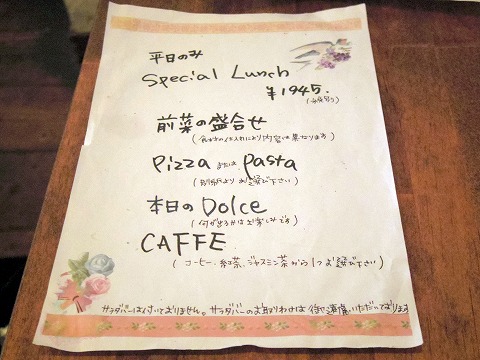 平日のみ
Special Lunch
¥1945.
前菜の盛合せ
(食材の仕入れにより内容は異なります)
Pizza または Pasta
(別紙よりお選び下さい)
本日の Dolce
(何が出るかはお楽しみです)
CAFFE
(コーヒー、紅茶、ジャスミン茶から1つお選び下さい)
サラダバーは付いておりません。サラダバーのお取りわけは御遠慮いただいております